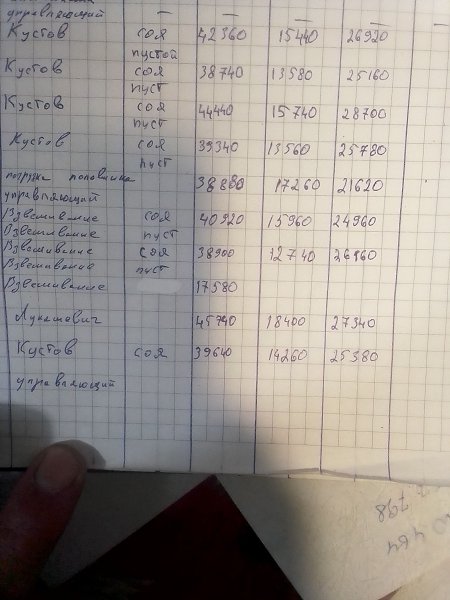 управляющий — — —
Кустов соя 42360 15440 26920
пустой
Кустов соя 38740 13580 25160
пуст
Кустов соя 44440 15740 28700
пуст
Кустов соя 39340 13560 25780
пуст
погрузка половинка 38880 17260 21620
управляющий
Взвешивание соя 40920 15960 24960
Взвешивание пуст
Взвешивание соя 38900 12740 26160
Взвешивание пуст
Взвешивание 17580
Лукашевич 45740 18400 27340
Кустов соя 39640 14260 25380
управляющий
798
464